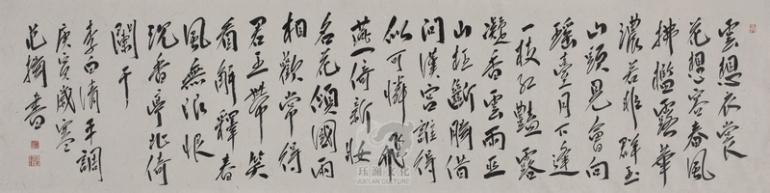 雲想衣裳
花想容春風
拂檻露華
濃若非群玉
山頭見會向
瑤臺月下逢
一枝紅艷露
凝香雲雨巫
山枉斷腸借
問漢宮誰得
似可憐飛
燕倚新妝
名花傾國兩
相歡常得
君王帶笑
看解釋春
風無限恨
沉香亭北倚
闌干
李白清平調
庚寅歲寒
范書
文化
CULTURE